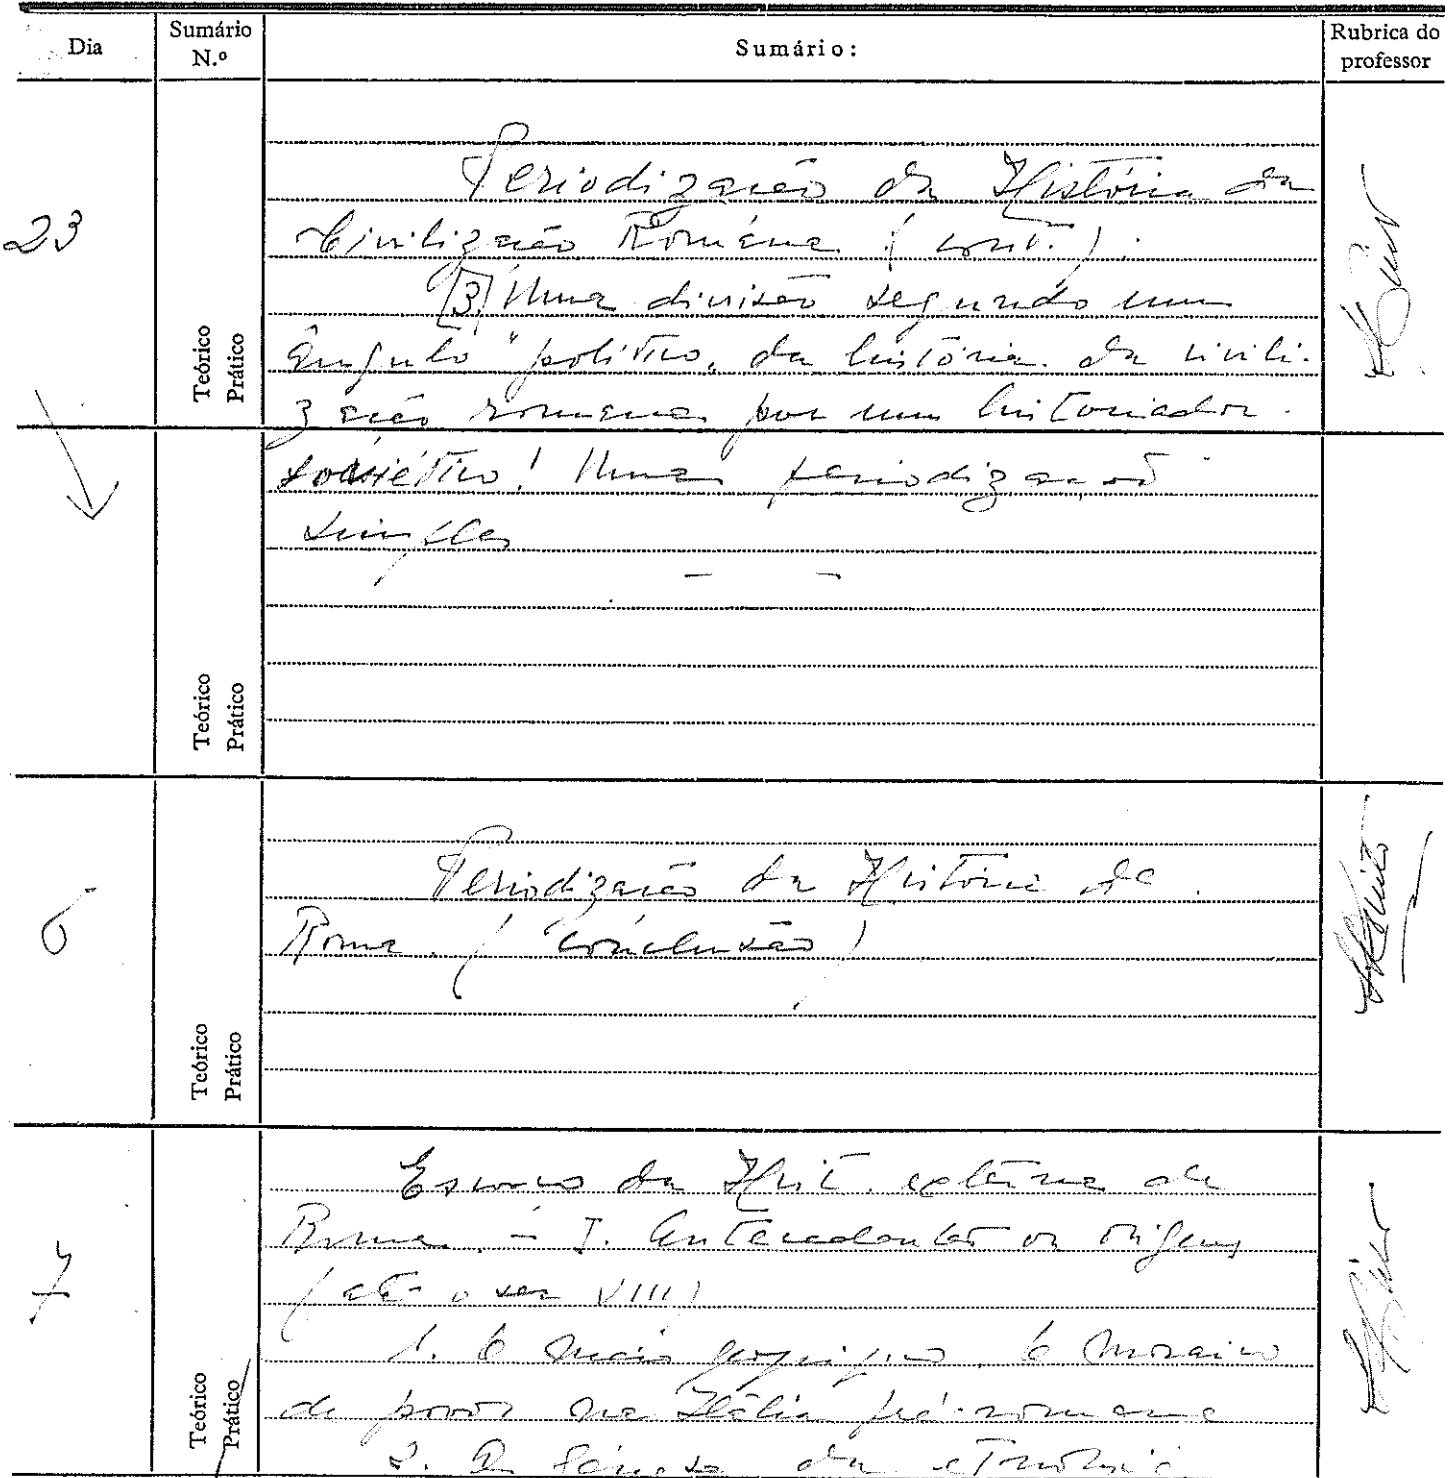 Dia
Sumário N.º
Sumário:
Rubrica do professor
23
Teórico
Prático
Periodização da História da
Civilização Romana (cont.).
[3] Uma divisão segundo um
ângulo "político" da história da civili-
zação romana por um historiador
soviético! Uma periodização
simples
Teórico
Prático
6
Teórico
Prático
Periodização da História de
Roma. (conclusão)
7
Teórico
Prático
Esboço da Hist. externa de
Roma. - I. Antecedentes ou origens
(até o sec VIII)
1. O meio geográfico. O mosaico
de povos na Itália pré-romana
2. da